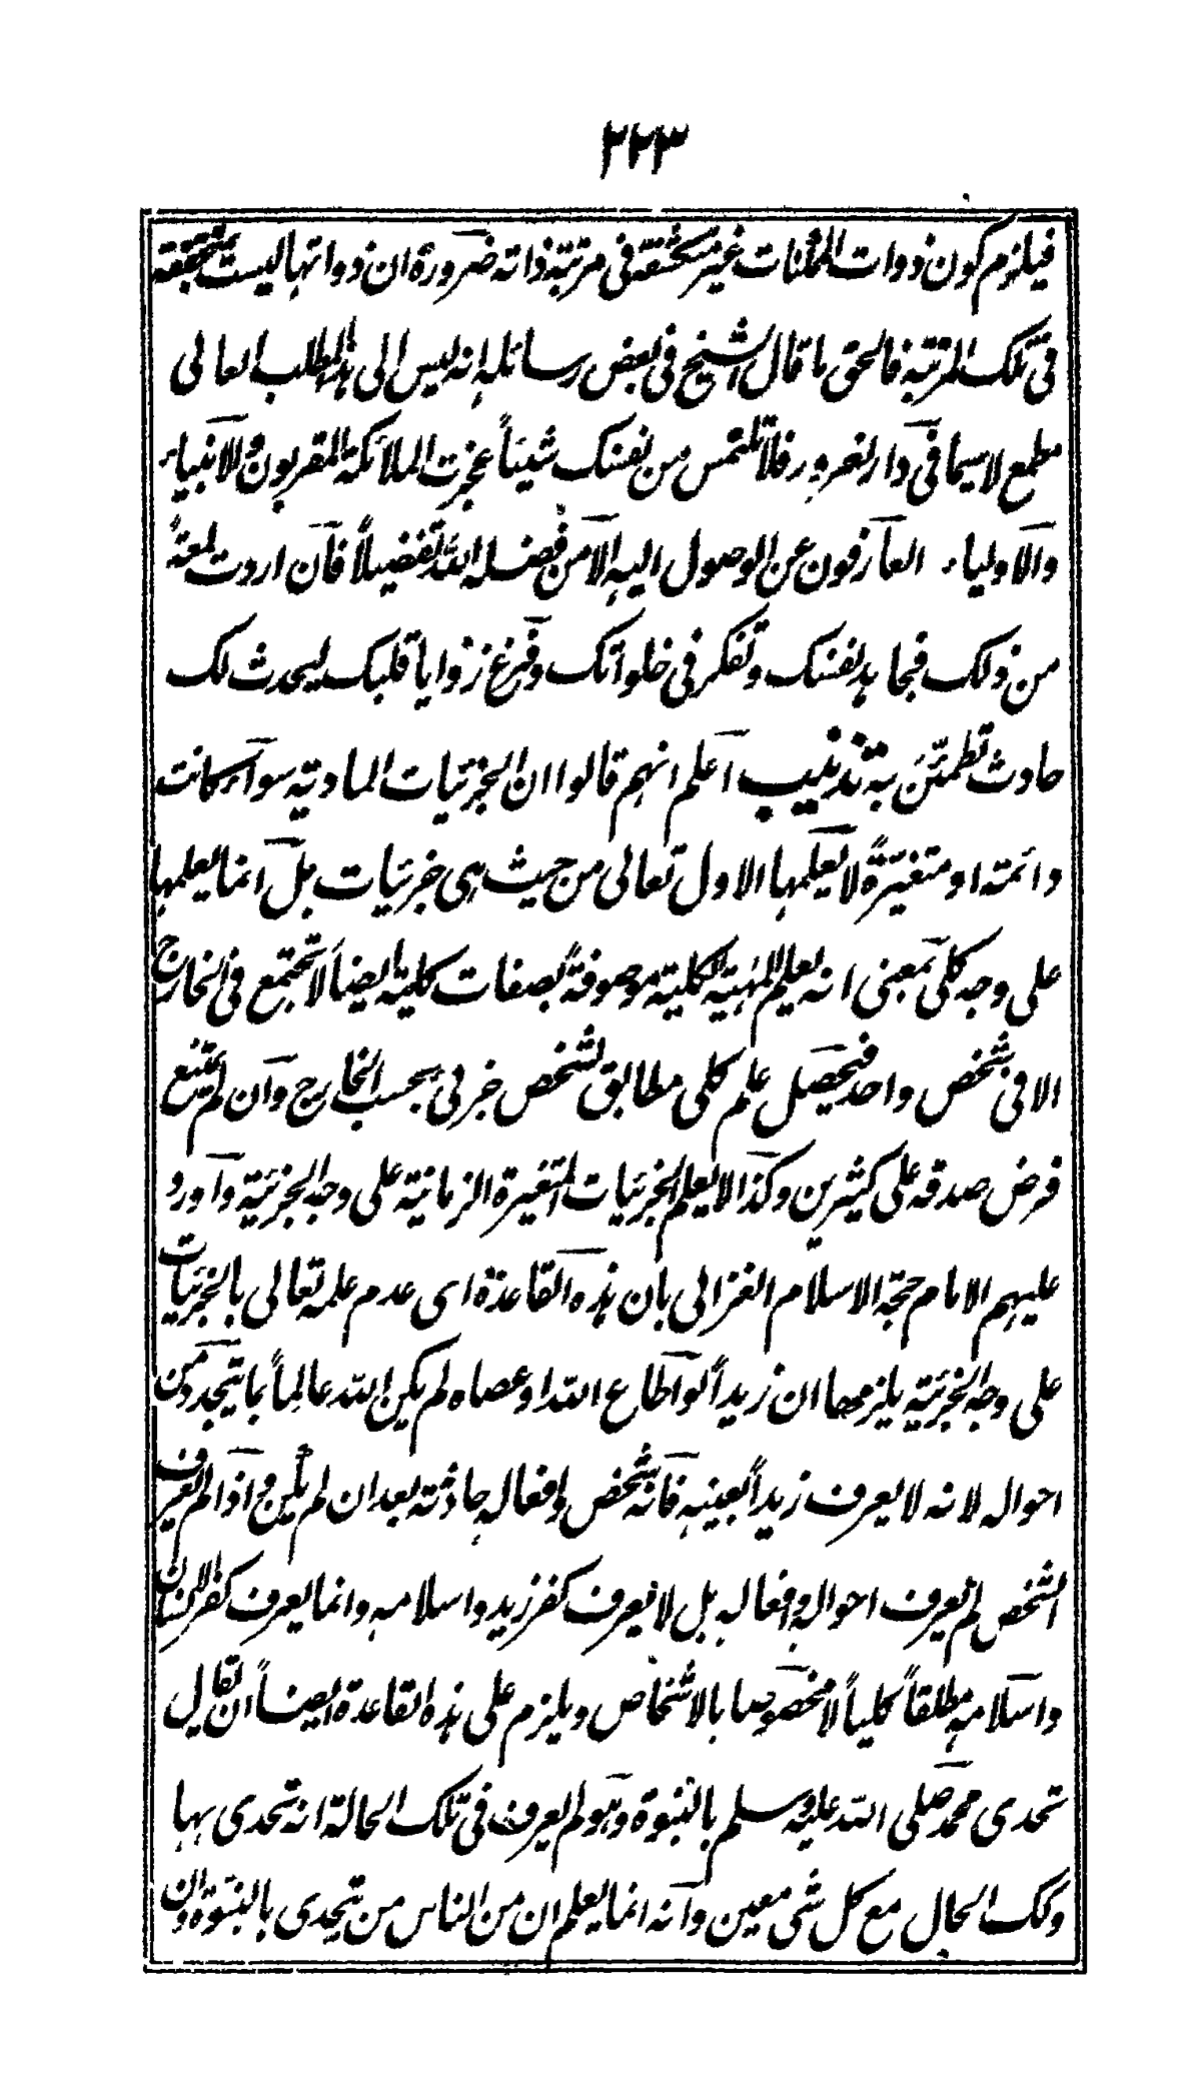 ٢٢٣
فيلزم كون ذوات الممكنات غير منكشفة فى مرتبة ذاته ضرورة ان ذواتها ليست متحققة
فى تلك المرتبة فالحق ما قال الشيخ فى بعض رسائله انه ليس الى هذا المطلب العالى
مطمع لاسيما فى دار الغرور فلا تلتمس من نفسك شيئاً عجزت الملائكة المقربون والانبياء
والاولياء العارفون عن الوصول اليه الا من فضله الله تفضيلاً فان اردت لمعةً
من ذلك فجاهد نفسك وتفكر فى خلواتك وفرغ زوايا قلبك ليحدث لك
حادث تطمئن به تذنيب اعلم انهم قالوا ان الجزئيات المادية سواء كانت
دائمة او متغيرةً لا يعلمها الاول تعالى من حيث هى جزئيات بل انما يعلمها
على وجه كلى بمعنى انه يعلم المهية الكلية موصوفةً بصفات كلية ايضاً لا تجتمع فى الخارج
الا فى شخص واحد فيحصل علم كلى مطابق لشخص جزئى بحسب الخارج وان لم يمتنع
فرض صدقه على كثيرين وكذا لا يعلم الجزئيات المتغيرة الزمانية على وجه الجزئية واورد
عليهم الامام حجة الاسلام الغزالى بان هذه القاعدة اى عدم علمه تعالى بالجزئيات
على وجه الجزئية يلزمها ان زيداً لو اطاع الله او عصاه لم يكن الله عالماً بما يتجدد من
احواله لانه لا يعرف زيداً بعينه فانه شخص وافعاله حادثة بعد ان لم يكن واذا لم يعرف
الشخص لم يعرف احواله وافعاله بل لا يعرف كفر زيد واسلامه وانما يعرف كفر الانسان
واسلامه مطلقاً كلياً لا مخصوصا بالاشخاص ويلزم على هذه القاعدة ايضاً ان يقال
تحدى محمد صلى الله عليه وسلم بالنبوة وهو لم يعرف فى تلك الحالة انه تحدى بها
وكك الحال مع كل شى معين وانه انما يعلم ان من الناس من يتحدى بالنبوة وان